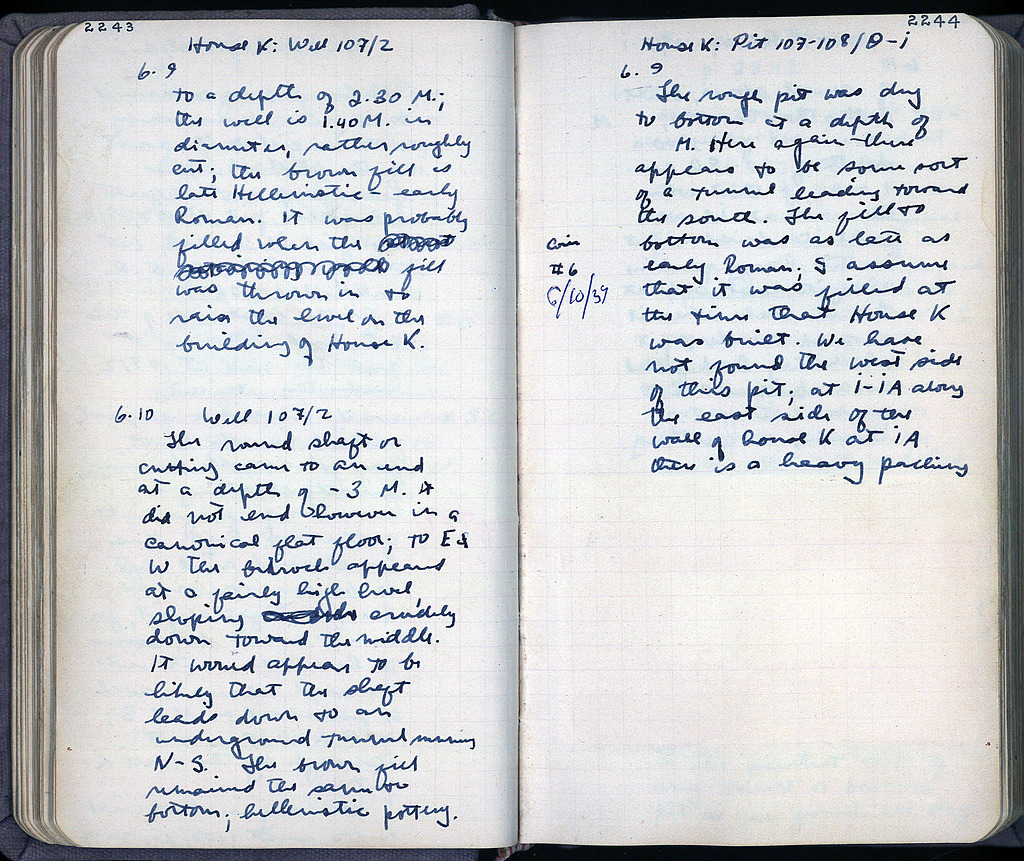 2243
House K: Well 107/2
6.9
to a depth of 2.30 M.;
the well is 1.40 M. in
diameter, rather roughly
cut; the brown fill is
late Hellenistic - early
Roman. It was probably
filled when the
fill
was thrown in to
raise the level on the
building of House K.
6.10 Well 107/2
The round shaft or
cutting came to an end
at a depth of -3 M. It
did not end however in a
canonical flat floor; to E &
W the bedrock appeared
at a fairly high level
sloping crudely
down toward the middle.
It would appear to be
likely that the shaft
leads down to an
underground tunnel running
N-S. The brown fill
remained the same to
bottom; hellenistic pottery.
2244
House K: Pit 107-108/Θ-i
6.9
The rough pit was dug
to bottom at a depth of
M. Here again there
appears to be some sort
of a tunnel leading toward
the south. The fill to
coin
#6
6/10/39
bottom was as late as
early Roman; I assume
that it was filled at
the time that House K
was built. We have
not found the west side
of this pit; at i-iA along
the east side of the
wall of house K at iA
there is a heavy packing